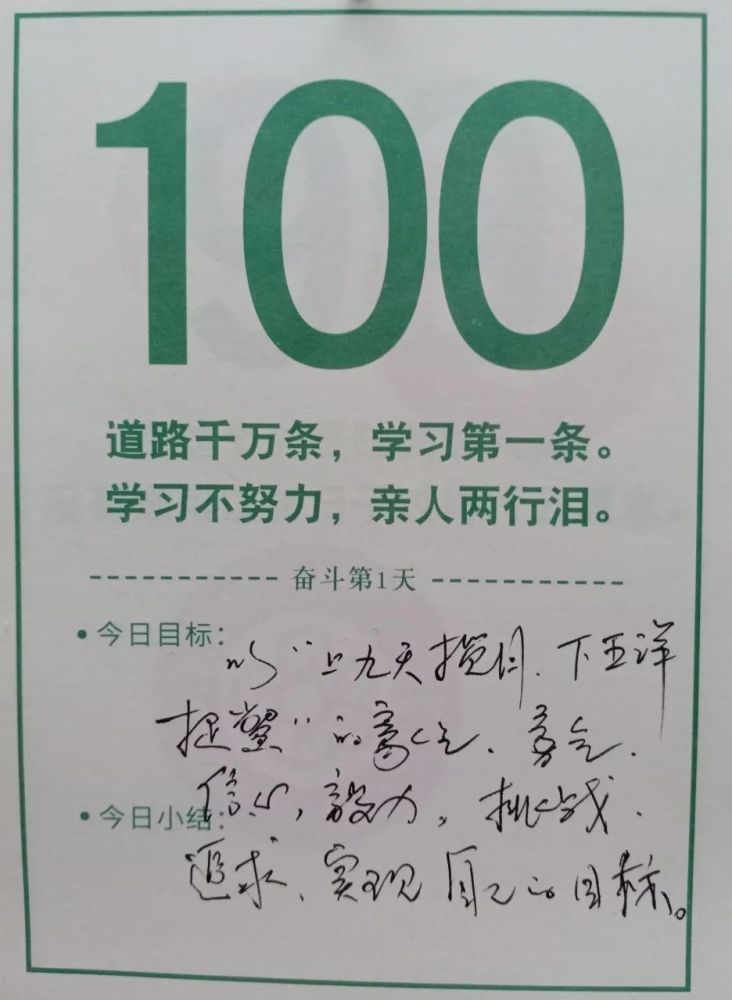 100
道路千万条，学习第一条。
学习不努力，亲人两行泪。
奋斗第1天
• 今日目标：
以“上九天揽月、下五洋
捉鳖”的豪气、勇气、
• 今日小结：
信心，毅力，挑战、
追求、实现自己的目标。